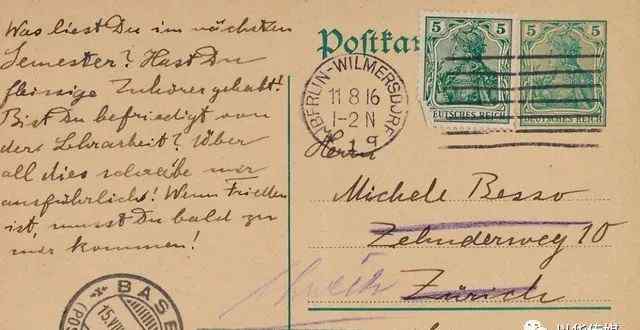 Was liest Du im nächsten
Semester? Hast Du
fleissige Zuhörer gehabt?
Bist Du befriedigt von
der Lehrarbeit? Über
all dies schreibe mir
ausführlich! Wenn Frieden
ist, musst Du bald zu
mir kommen!
Postkar
5 5
5 5
EUTSCHES REICH
DEUTSCHES REICH
BERLIN-WILMERSDORF
11 8 16
1-2 N
Herrn
Michele Besso
Zehnderweg 10
Zürich
BASE
15.VIII